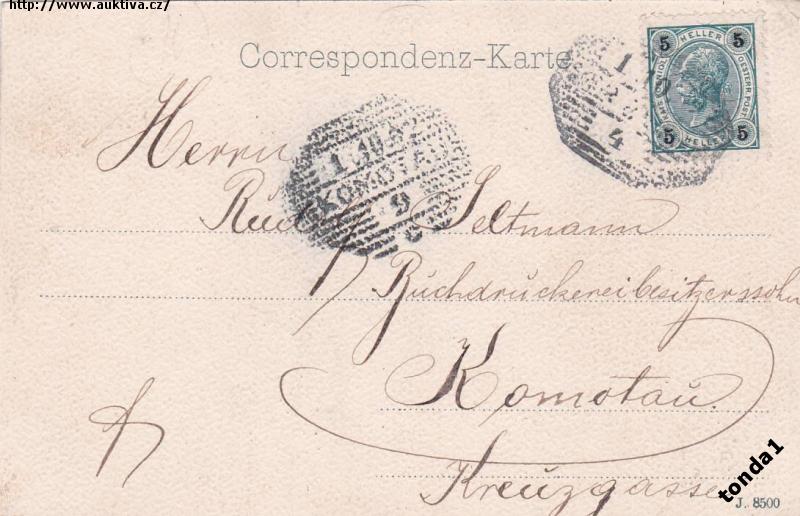 http://www.auktiva.cz/
Correspondenz-Karte
5 HELLER 5
5 HELLER 5
OESTERR. POST
1
4
KOMOTAU
9
Herrn
Rudolf Seltmann
Buchdruckereibesitzerssohn
Komotau.
Kreuzgasse
tonda1
J. 8500